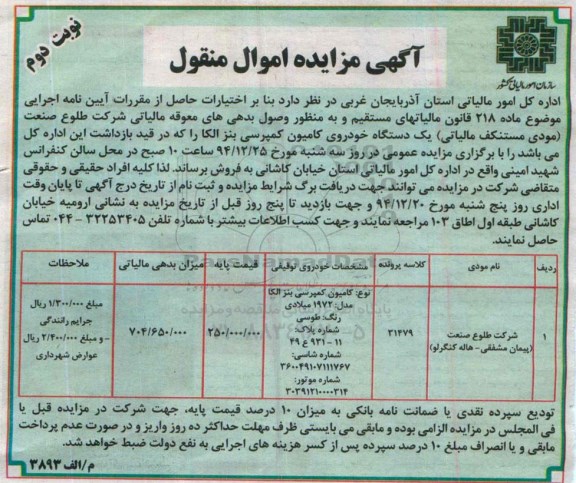 نوبت دوم
آگهی مزایده اموال منقول
سازمان امور مالیاتی کشور
اداره کل امور مالیاتی استان آذربایجان غربی در نظر دارد بنا بر اختیارات حاصل از مقررات آیین نامه اجرایی
موضوع ماده ۲۱۸ قانون مالیاتهای مستقیم و به منظور وصول بدهی های معوقه مالیاتی شرکت طلوع صنعت
(مودی مستنکف مالیاتی) یک دستگاه خودروی کامیون کمپرسی بنز الکا را که در قید بازداشت این اداره کل
می باشد را با برگزاری مزایده عمومی در روز سه شنبه مورخ ۹۴/۱۲/۲۵ ساعت ۱۰ صبح در محل سالن کنفرانس
شهید امینی واقع در اداره کل امور مالیاتی استان خیابان کاشانی به فروش برساند. لذا کلیه افراد حقیقی و حقوقی
متقاضی شرکت در مزایده می توانند جهت دریافت برگ شرایط مزایده و ثبت نام از تاریخ درج آگهی تا پایان وقت
اداری روز پنج شنبه مورخ ۹۴/۱۲/۲۰ و جهت بازدید تا پنج روز قبل از تاریخ مزایده به نشانی ارومیه خیابان
کاشانی طبقه اول اطاق ۱۰۳ مراجعه نمایند و جهت کسب اطلاعات بیشتر با شماره تلفن ۳۲۲۵۳۴۰۵ - ۰۴۴ تماس
حاصل نمایند.
ردیف نام مودی کلاسه پرونده مشخصات خودروی توقیفی قیمت پایه میزان بدهی مالیاتی ملاحظات
۱
شرکت طلوع صنعت
(پیمان مشفقی- هاله کنگرلو)
۳۱۴۷۹
نوع: کامیون کمپرسی بنز الکا
مدل: ۱۹۷۲ میلادی
رنگ: طوسی
شماره پلاک:
۱۱ - ۹۳۱ ع ۴۹
شماره شاسی:
۳۶۰۰۴۹۱۰۷۱۱۱۷۶۷
شماره موتور:
۳۰۳۹۱۲۱۰۰۰۰۳۱۴
۲۵۰/۰۰۰/۰۰۰
۷۰۴/۶۵۰/۰۰۰
مبلغ ۱/۳۰۰/۰۰۰ ریال
جرایم رانندگی
- و مبلغ ۲/۴۰۰/۰۰۰ ریال
عوارض شهرداری
تودیع سپرده نقدی یا ضمانت نامه بانکی به میزان ۱۰ درصد قیمت پایه، جهت شرکت در مزایده قبل یا
فی المجلس در مزایده الزامی بوده و مابقی می بایستی ظرف مهلت حداکثر ده روز واریز و در صورت عدم پرداخت
مابقی و یا انصراف مبلغ ۱۰ درصد سپرده پس از کسر هزینه های اجرایی به نفع دولت ضبط خواهد شد.
م/الف ۳۸۹۳